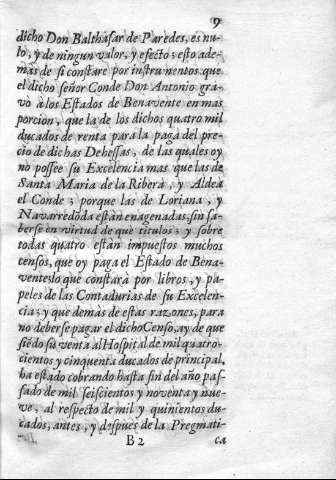 9
dicho Don Balthasar de Paredes, es nu-
lo, y de ningun valor, y efecto; esto ade-
màs de si constare por instrumentos, que
el dicho señor Conde Don Antonio gra-
vò à los Estados de Benavente en mas
porcion, que la de los dichos quatro mil
ducados de renta para la paga del pre-
cio de dichas Dehessas, de las quales oy
no possee su Excelencia mas que las de
Santa Maria de la Ribera, y Aldea
el Conde; porque las de Loriana, y
Navarredoda estàn enagenadas, sin sa-
berse en virtud de què titulos; y sobre
todas quatro estàn impuestos muchos
censos, que oy paga el Estado de Bena-
vente; lo que constarà por libros, y pa-
peles de las Contadurias de su Excelen-
cia; y que demàs de estas razones, para
no deberse pagar el dicho Censo, ay de que
siẽdo su venta al Hospital de mil quatro-
cientos y cinquenta ducados de principal,
ha estado cobrando hasta fin del año pas-
sado de mil seiscientos y noventa y nue-
ve, al respecto de mil y quinientos du-
cados, antes, y despues de la Pregmati-
B 2 ca